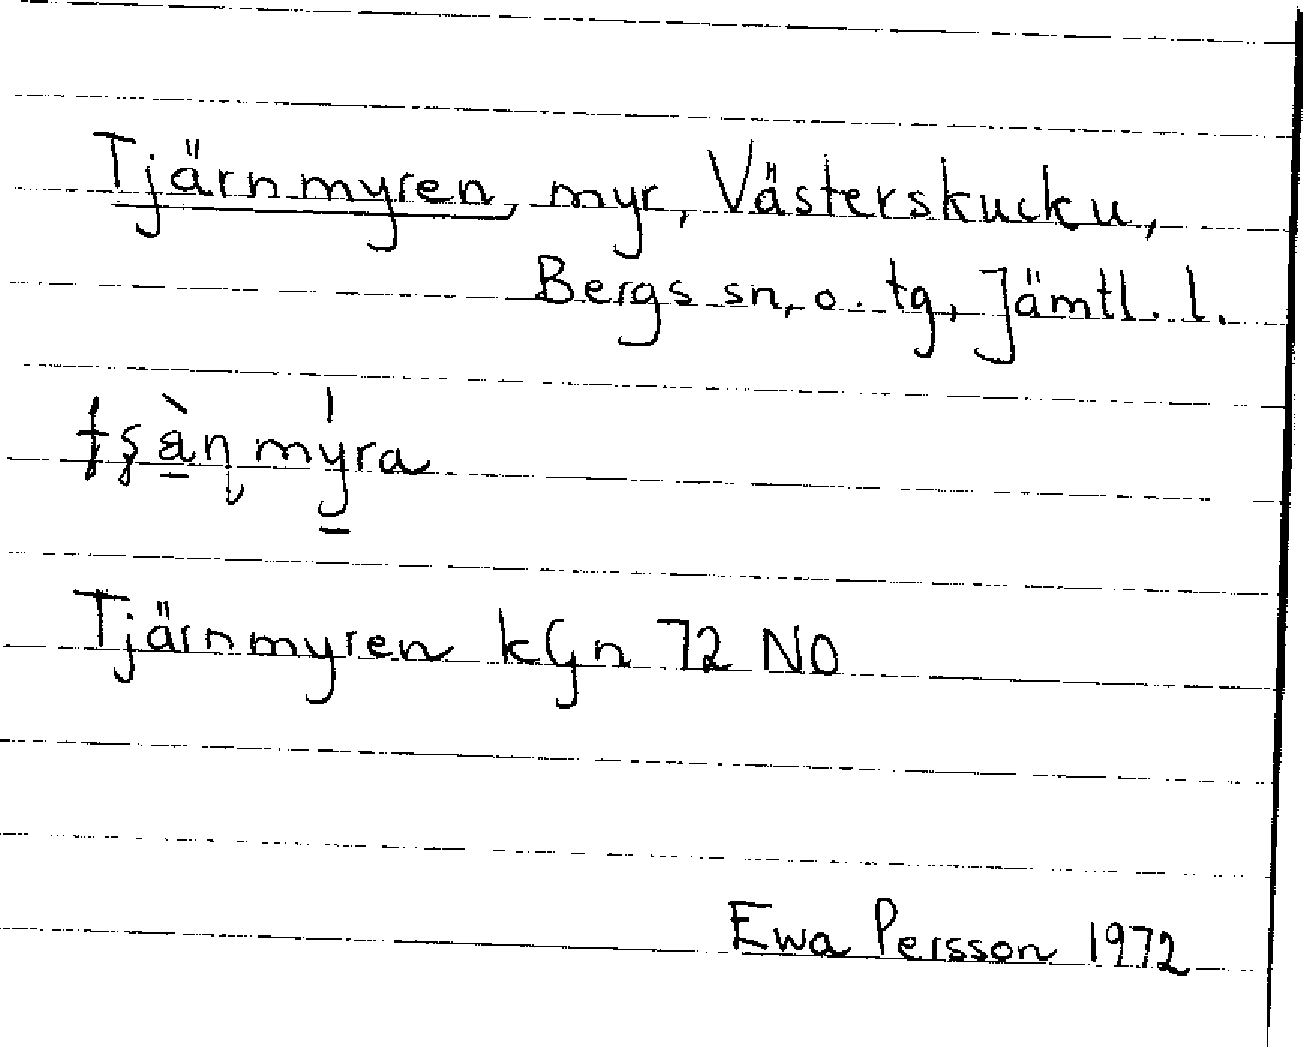 Tjärnmyren, myr, Västerskucku,
Bergs sn, o. tg, Jämtl. l.
tʂà̱ɳmý̱ra
Tjärnmyren kGn 72 NO
Ewa Persson 1972